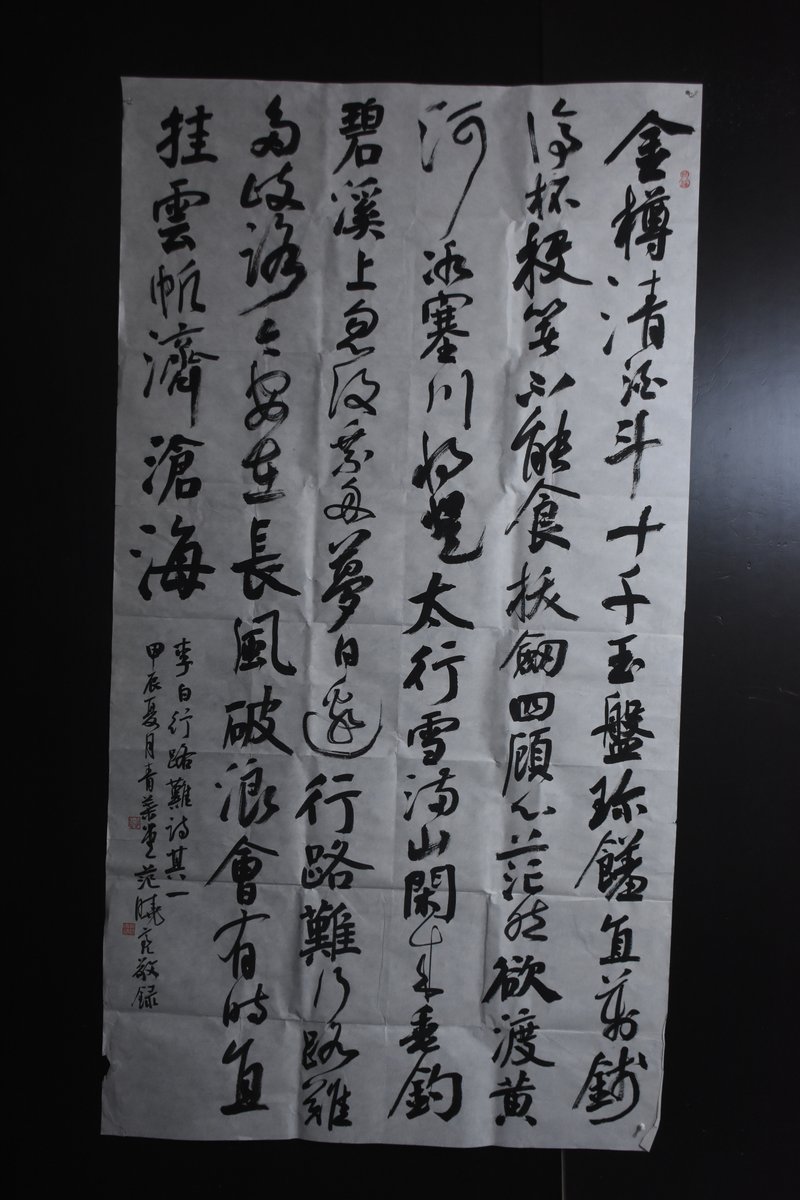 金樽清酒斗十千玉盤珎饈直萬錢
停杯投箸不能食拔劍四顧心茫然欲渡黄
河冰塞川將登太行雪滿山閑來垂釣
碧溪上忽復乘舟夢日邊行路難行路難
多歧路今安在長風破浪會有時直
挂雲帆濟滄海
李白行路難詩其一
甲辰夏月青堂范曉亮敬録